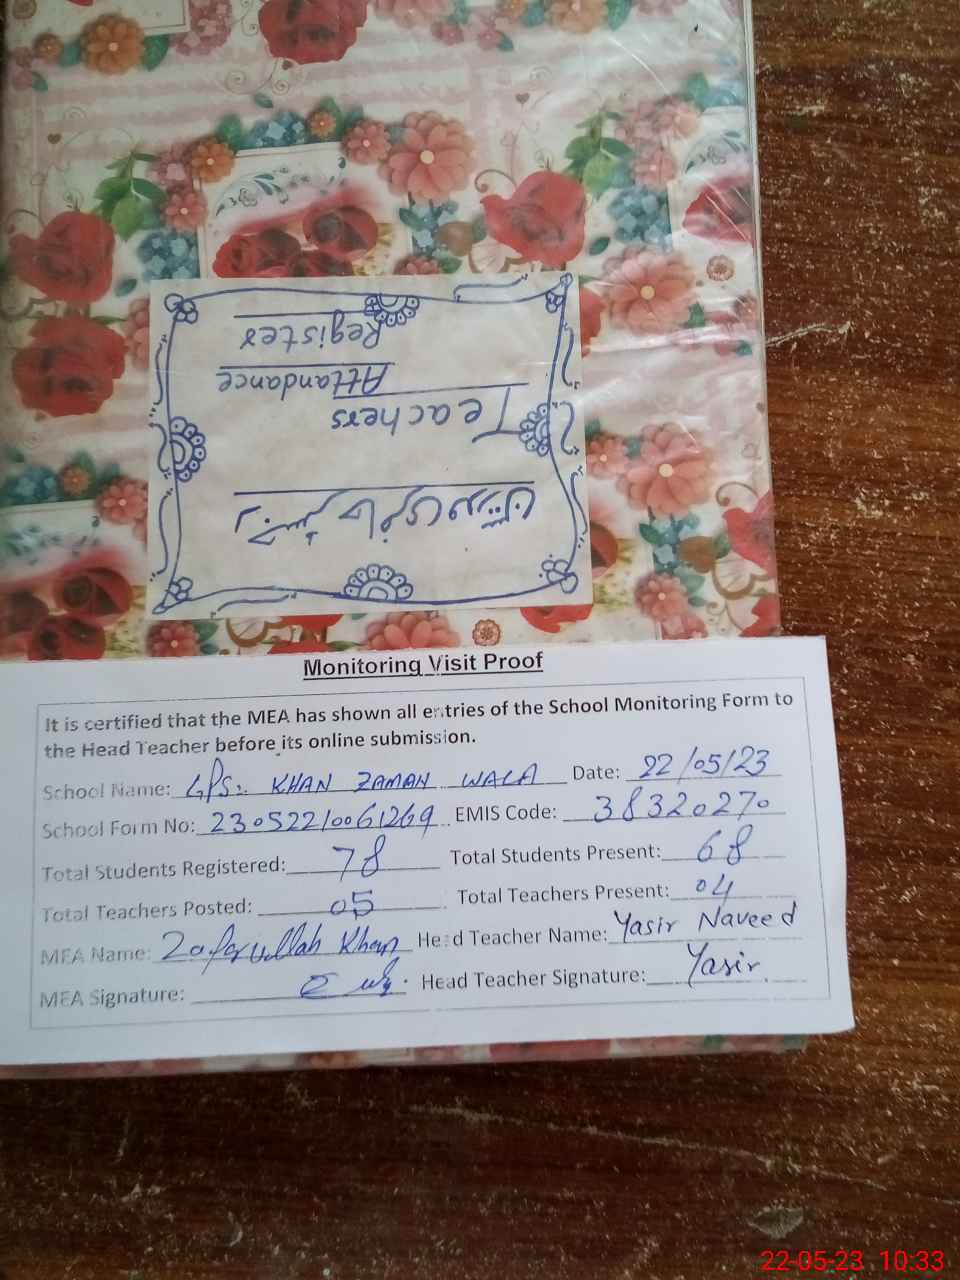 رجسٹر حاضری مدرسین
Teachers
Attandance
Register
Monitoring Visit Proof
It is certified that the MEA has shown all entries of the School Monitoring Form to
the Head Teacher before its online submission.
School Name: GPS: KHAN ZAMAN WALA Date: 22/05/23
School Form No: 23052210061269 EMIS Code: 38320270
Total Students Registered: 78 Total Students Present: 68
Total Teachers Posted: 05 Total Teachers Present: 04
MEA Name: Zafarullah Khan Head Teacher Name: Yasir Naveed
MEA Signature: Head Teacher Signature: Yasir
22-05-23 10:33